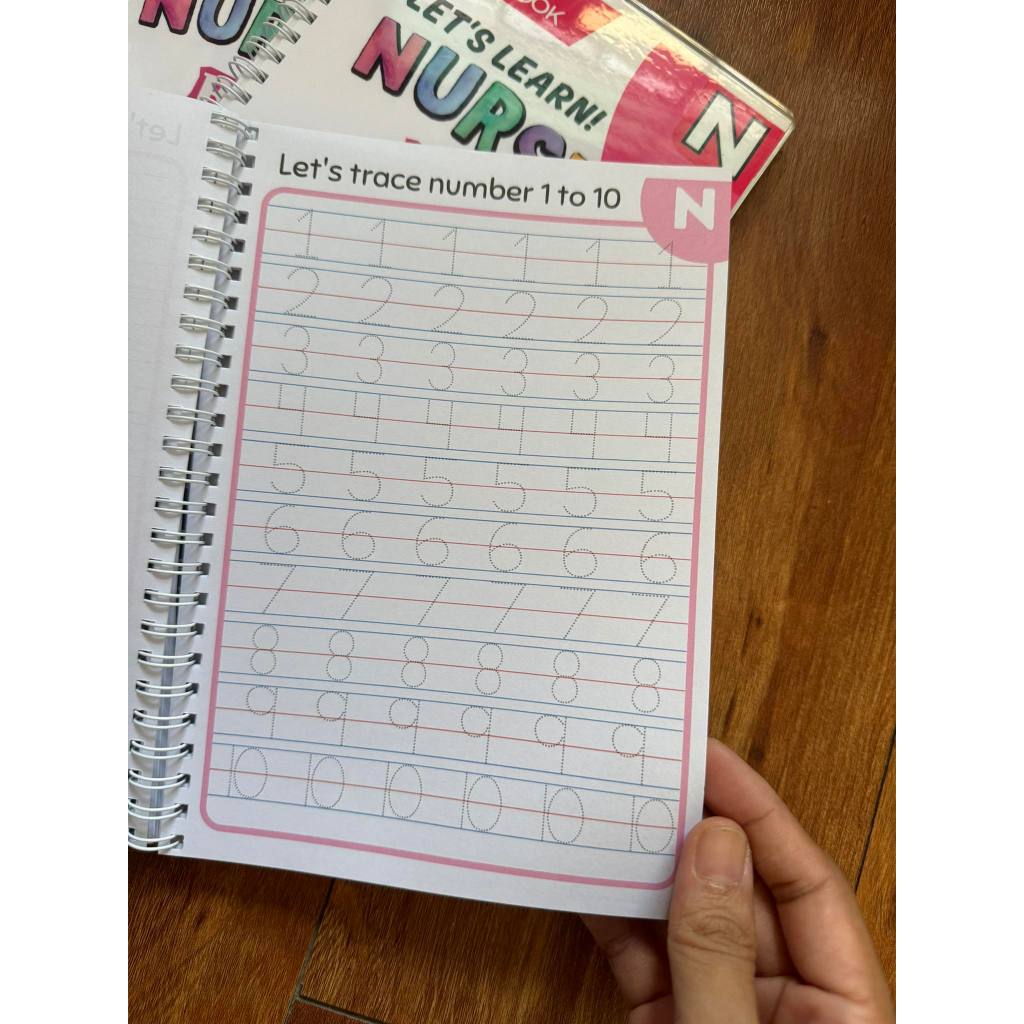 NUR
OOK
LET'S LEARN!
NURS
N
Let'
Let's trace number 1 to 10
N
1 1 1 1 1 1
2 2 2 2 2 2
3 3 3 3 3 3
4 4 4 4 4 4
5 5 5 5 5 5
6 6 6 6 6 6
7 7 7 7 7 7
8 8 8 8 8 8
9 9 9 9 9 9
10 10 10 10 10 10